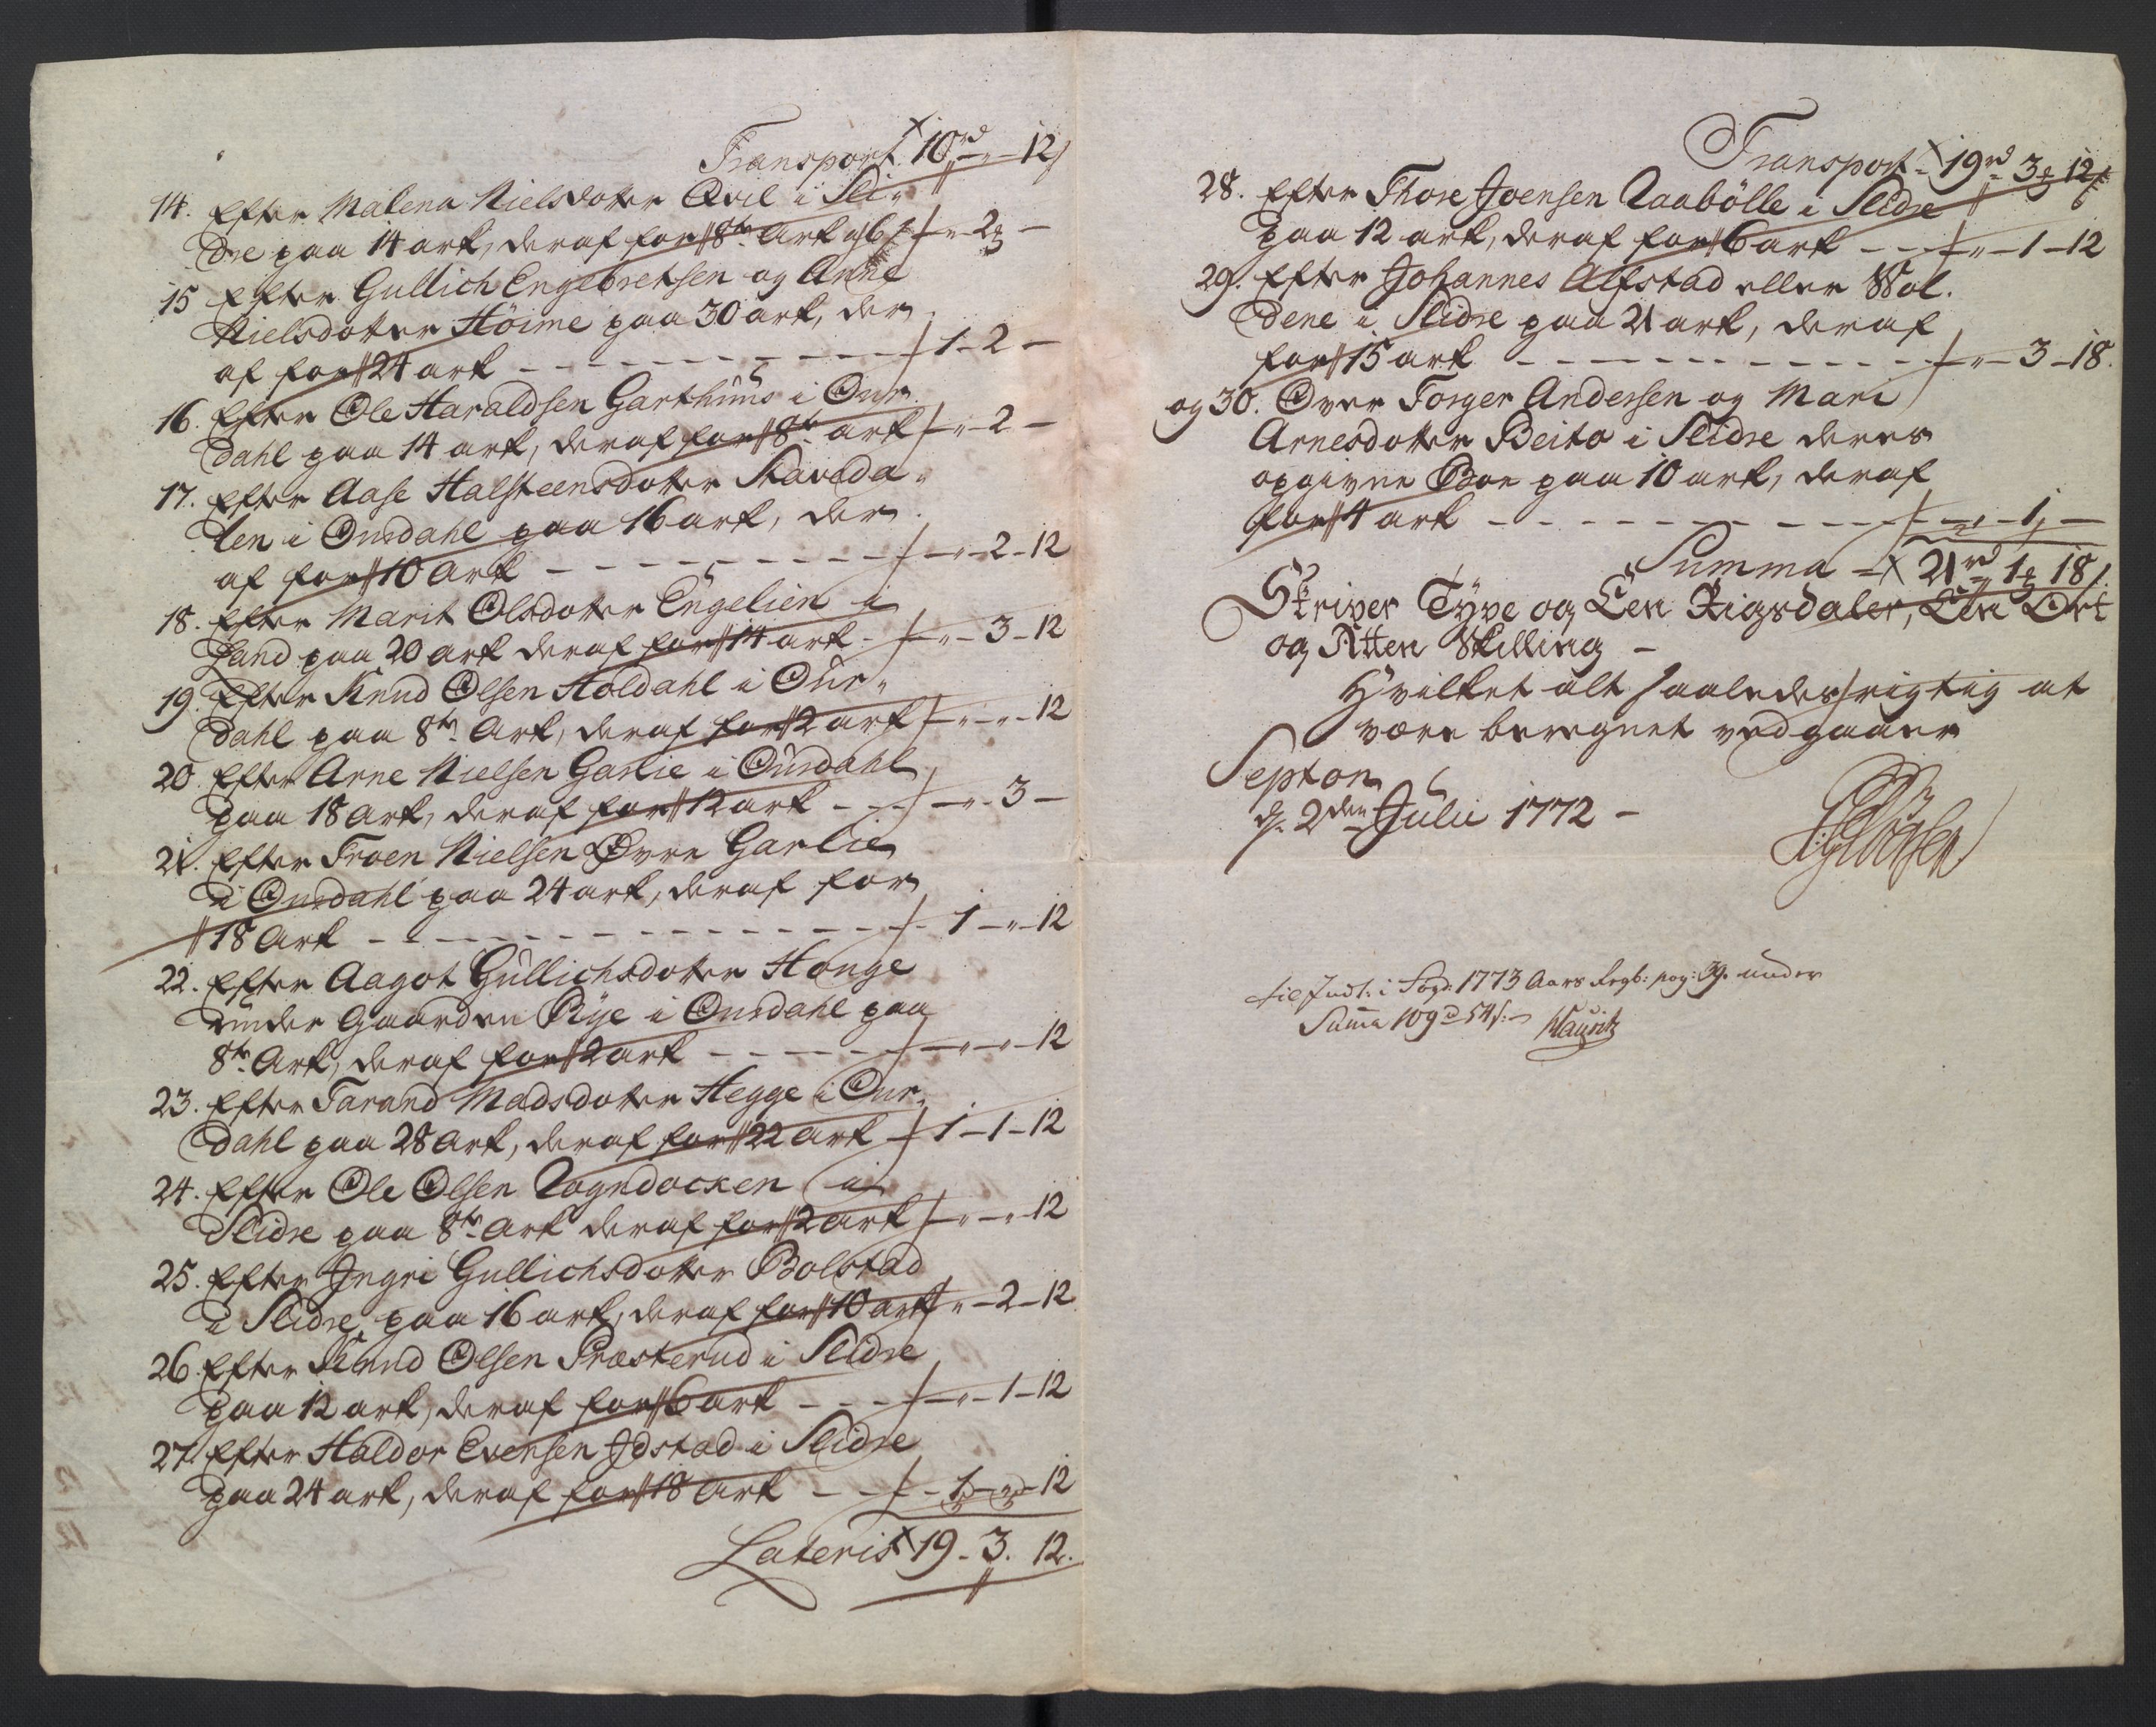 Transport 10rd " 12s
14. Efter Malena Nielsdotter Qvil i Sli-
dre paa 14 ark, deraf for 8te Ark a 6s " 2 -
15 Efter Gullich Engebretsen og Anne
Nielsdotter Höime paa 30 ark, der
af for 24 ark - - - 1 - 2 -
16. Efter Ole Haraldsen Garthuus i Our
dahl paa 14 ark, deraf for 8te ark " 2 -
17. Efter Aase Halsteensdotter Raveda-
len i Ourdahl paa 16 ark, der
af for 10 Ark - - - " 2 - 12
18. Efter Marit Olsdotter Engelien i
Land paa 20 ark deraf for 14 ark - " 3 - 12
19. Efter Knud Olsen Holdahl i Our-
dahl paa 8te Ark, deraf for 2 ark " " 12
20. Efter Arne Nielsen Garlie i Ourdahl
paa 18 Ark, deraf for 12 ark - - " 3 -
21. Efter Troen Nielsen Øvre Garlie
i Ourdahl paa 24 ark, deraf for
18 Ark - - - 1 - " - 12
22. Efter Aagot Gullichsdotter Hange
under Gaarden Rye i Ourdahl paa
8te Ark, deraf for 2 ark - - - " " 12
23. Efter Tarand Madsdotter Hegge i Our-
dahl paa 28 Ark, deraf for 22 Ark 1 - 1 - 12
24. Efter Ole Olsen Rogndocken i
Slidre paa 8te Ark deraf for 2 ark " " 12
25. Efter Ingri Gullichsdotter Bolstad
i Slidre paa 16 ark, deraf for 10 ark " - 2 - 12
26. Efter Knud Olsen Præsterud i Slidre
paa 12 ark, deraf for 6 ark - - - " - 1 - 12
27. Efter Haldor Evensen Idstad i Slidre
paa 24 ark, deraf for 18 Ark - - 1 - " - 12
Lateris 19 - 3. 12.
Transport - 19rd 3 12s
28. Efter Thore Joensen Raabölle i Slidre
paa 12 ark, deraf for 6 ark - - " - 1 - 12
29. Efter Johannes Alfstad eller Vol.
dene i Slidre paa 21 ark, deraf
for 15 ark - - - " - 3 - 18.
og 30. Over Torger Andersen og Mari
Arnesdotter Beito i Slidre deres
opgivne Boe paa 10 ark, deraf
for 4 ark - - - " - 1 -
Summa - 21rd 1 18s.
Skriver Tyve og Een Rigsdaler, Een Ort
og Atten Skilling -
Hvilket alt saaledes rigtig at
være beregnet vedgaaer
Septon
d. 2den Julii 1772 -
til Indt: i Fogd: 1773 Aars Regb: pag: 39. under
Summa 109rd 54s.